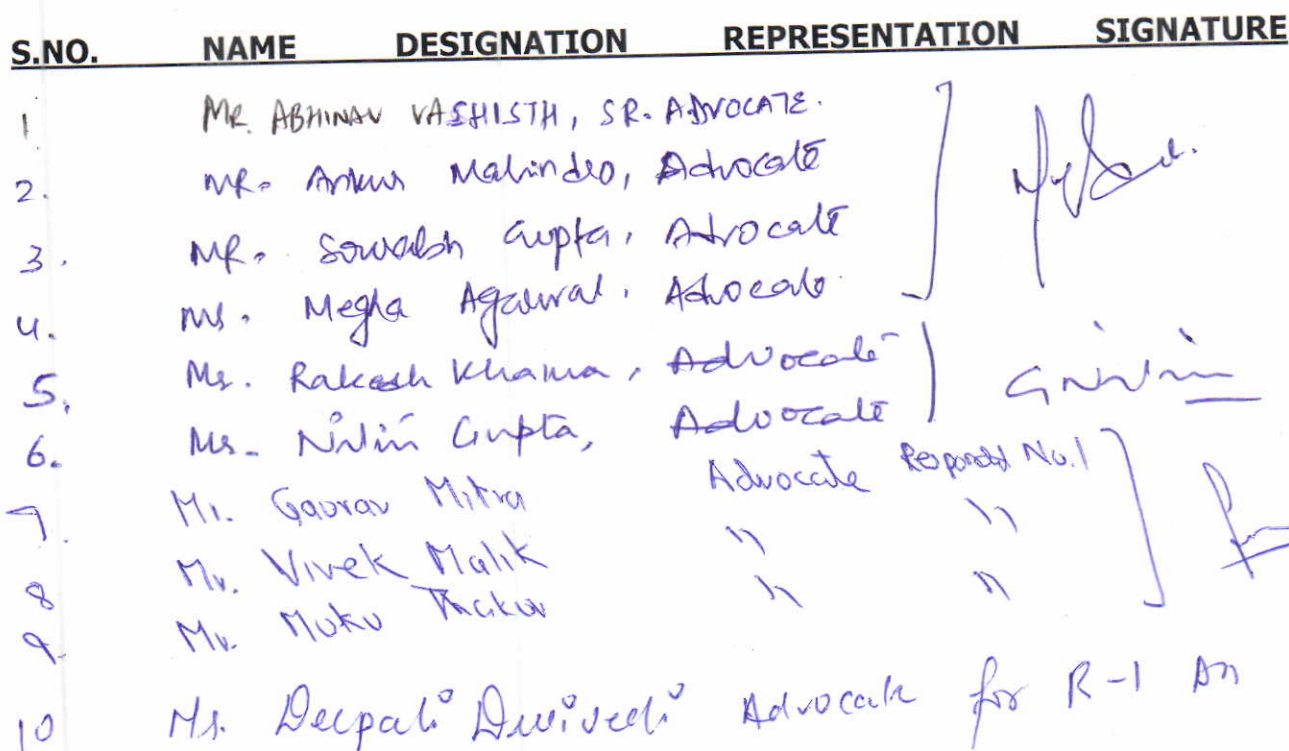 S.NO. NAME DESIGNATION REPRESENTATION SIGNATURE
1 MR. ABHINAV VASHISTH, SR. ADVOCATE.
2. MR. Ankur Mahindro, Advocate
3. MR. Sourabh Gupta, Advocate
4. Ms. Megha Agarwal, Advocate
5. Mr. Rakesh Khanna, Advocate
6. Mr. Nitin Gupta, Advocate
7. Mr. Gaurav Mitra Advocate Respondent No.1
8 Mr. Vivek Malik " "
9. Mr. Thakur " "
10 Ms. Deepali Dwivedi Advocate for R-1